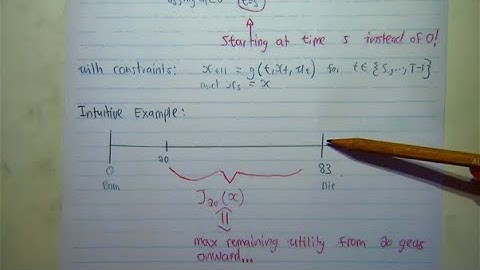 t=s
Starting at time s instead of 0!
with constraints: x_{t+1} = g(t, x_t, u_t) for t ∈ {s,..., T-1}
and x_s = x
Intuitive Example:
0 20 83
Born Die
J_{20}(x)
max remaining utility from 20 years
onward...